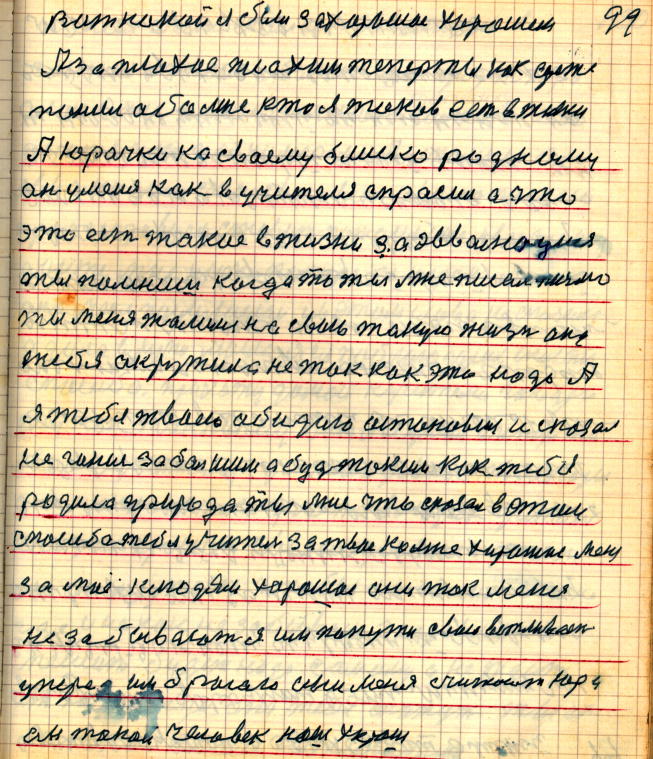 вот какой я был за хорошое хорошем 99
А за плохое плохим теперь ты как
мне кто я таков ест в жизни
А юрачки ка своему близко родному
он у меня как в учителя спрасил а что
это ест такое в жизни за эввалюцыя
ты помниш когда то ты мне писал писмо
ты меня жалил на свою такую жизн она
тебя акружила не так как это надо А
я тебя тваю абиду астановил и сказал
не гонис за болшим а буд таким как тебя
родила природа ты мне что сказал в этом
спасиба тебе учител за твое ка мне хорошое меня
за мое к людям хорошое они так меня
не забывают я им папути свои
упере им бросаю они меня считают
ест такой человек наш